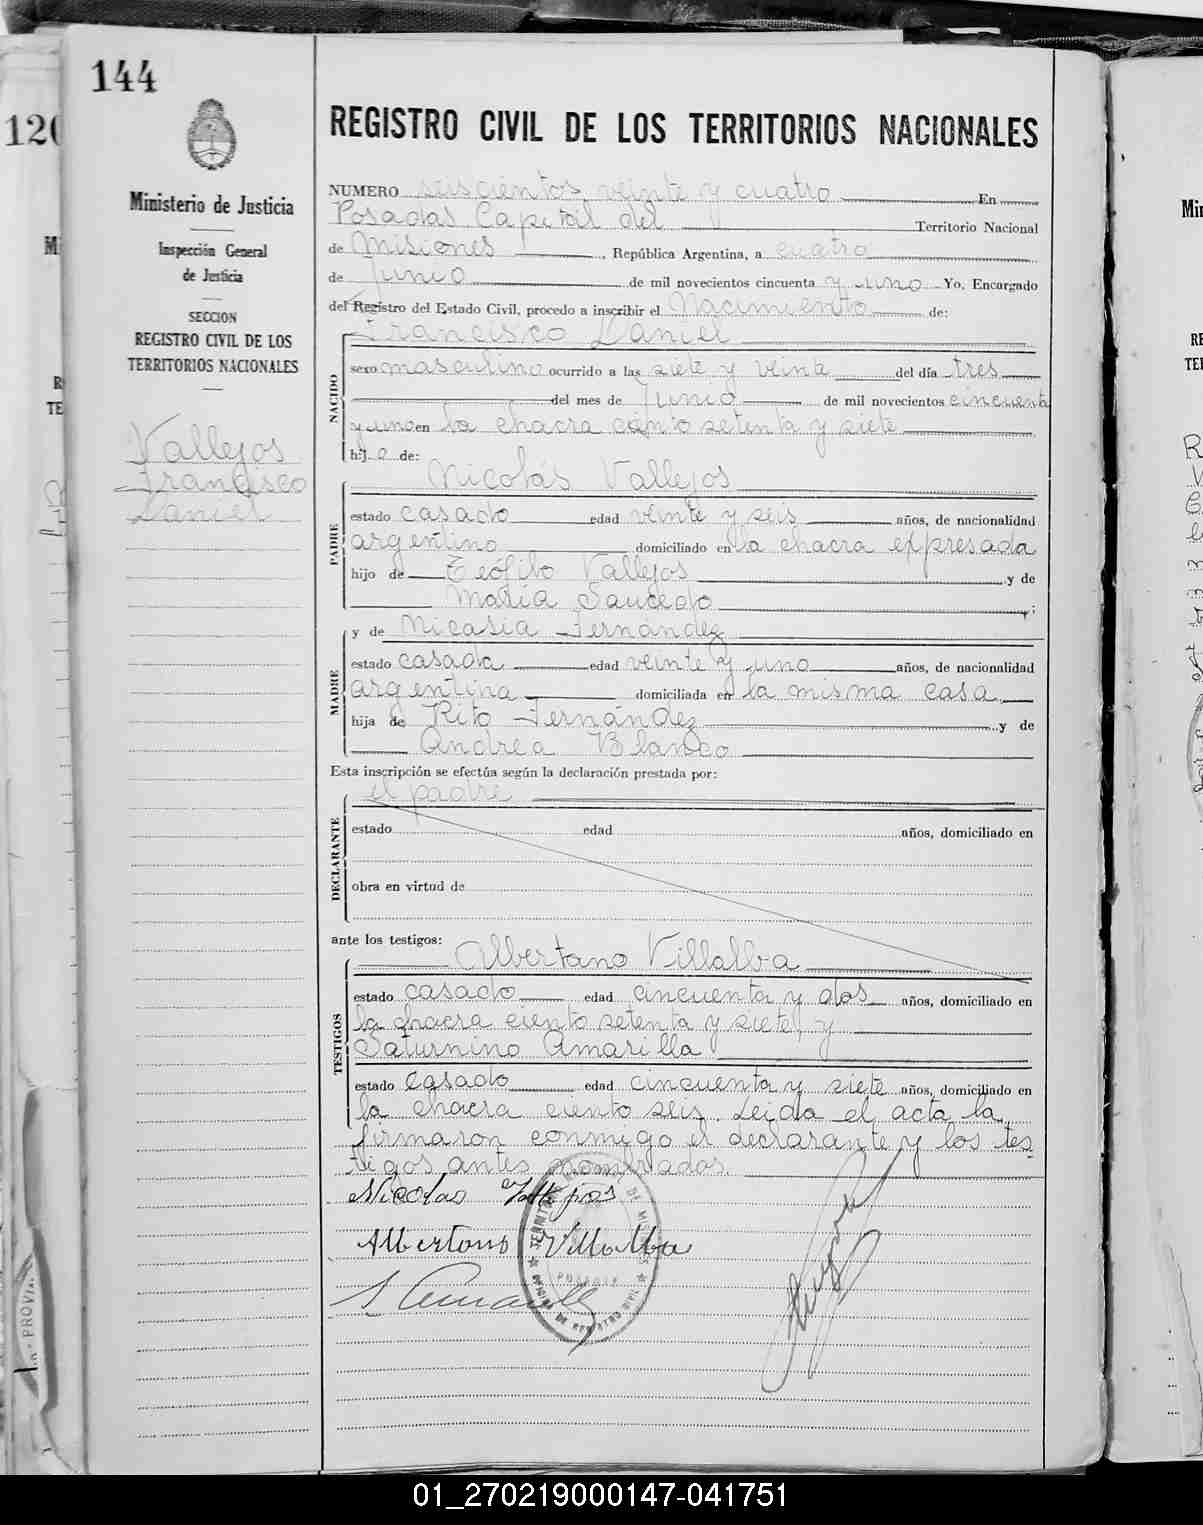 144
120
REGISTRO CIVIL DE LOS TERRITORIOS NACIONALES
Ministerio de Justicia
Inspección General
de Justicia
SECCION
REGISTRO CIVIL DE LOS
TERRITORIOS NACIONALES
Vallejos
Francisco
Daniel
NUMERO seiscientos veinte y cuatro En
Posadas Capital del Territorio Nacional
de Misiones, República Argentina, a cuatro
de Junio de mil novecientos cincuenta y uno Yo, Encargado
del Registro del Estado Civil, procedo a inscribir el Nacimiento de:
Francisco Daniel
NACIDO
sexo masculino ocurrido a las siete y veinte del día tres
del mes de Junio de mil novecientos cincuenta
y uno en la chacra ciento setenta y siete
hijo de:
Nicolás Vallejos
PADRE
estado casado edad veinte y seis años, de nacionalidad
argentino domiciliado en la chacra expresada
hijo de Teófilo Vallejos y de
María Saucedo;
y de Nicasia Fernández
MADRE
estado casada edad veinte y uno años, de nacionalidad
argentina domiciliada en la misma casa
hija de Rito Fernández y de
Andrea Blanco
Esta inscripción se efectúa según la declaración prestada por:
el padre
DECLARANTE
estado edad años, domiciliado en
obra en virtud de
ante los testigos:
Albertano Villalba
TESTIGOS
estado casado edad cincuenta y dos años, domiciliado en
la chacra ciento setenta y siete, y
Saturnino Amarilla
estado casado edad cincuenta y siete años, domiciliado en
la chacra ciento seis. Leida el acta la
firmaron conmigo el declarante y los tes-
tigos antes nombrados.
Nicolas Vallejos
Albertano Villalba
S Amarilla
POSADAS
OFICINA DE REGISTRO CIVIL
01_270219000147-041751